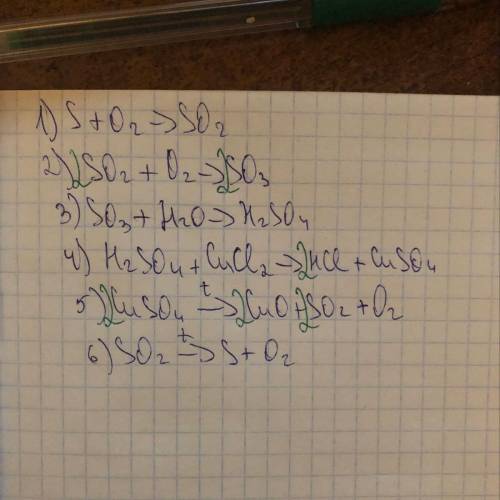 1) S + O₂ → SO₂
2) 2SO₂ + O₂ → 2SO₃
3) SO₃ + H₂O → H₂SO₄
4) H₂SO₄ + CuCl₂ → 2HCl + CuSO₄
5) 2CuSO₄ t→ 2CuO + 2SO₂ + O₂
6) SO₂ t→ S + O₂